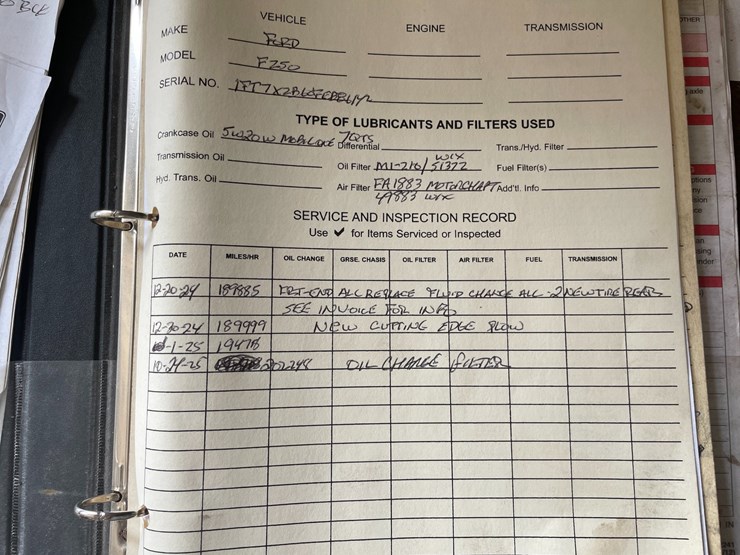 BCK
VEHICLE ENGINE TRANSMISSION
MAKE FORD
MODEL F250
SERIAL NO.
TYPE OF LUBRICANTS AND FILTERS USED
Crankcase Oil 5W20W MOBIL ONE 7QTS Differential Trans./Hyd. Filter
Transmission Oil Oil Filter M1-210/51372 WIX Fuel Filter(s)
Hyd. Trans. Oil Air Filter FA1883 MOTORCRAFT Add'tl. Info
49883 WIX
SERVICE AND INSPECTION RECORD
Use ✔ for Items Serviced or Inspected
DATE MILES/HR OIL CHANGE GRSE. CHASIS OIL FILTER AIR FILTER FUEL TRANSMISSION
12-20-24 189885 FRT-END ALL REPLACE FLUID CHANGE ALL - 2 NEW TIRE REARS
SEE INVOICE FOR INFO
12-30-24 189999 NEW CUTTING EDGE PLOW
-1-25
10-24-25 202248 OIL CHANGE FILTER
OTHER
axle
IN